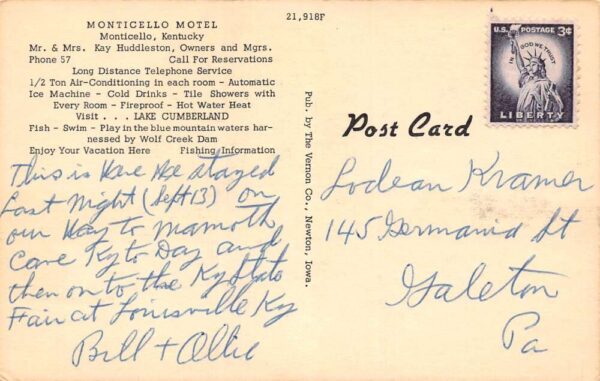 MONTICELLO MOTEL
Monticello, Kentucky
Mr. & Mrs. Kay Huddleston, Owners and Mgrs.
Phone 57 Call For Reservations
Long Distance Telephone Service
1/2 Ton Air-Conditioning in each room - Automatic
Ice Machine - Cold Drinks - Tile Showers with
Every Room - Fireproof - Hot Water Heat
Visit . . . LAKE CUMBERLAND
Fish - Swim - Play in the blue mountain waters har-
nessed by Wolf Creek Dam
Enjoy Your Vacation Here Fishing Information
This is where we stayed
Last night (Sept 13) on
our way to Mamoth
Cave Ky to Day and
then on to the Ky State
Fair at Louisville Ky
Bill + Ollie
21,918F
Pub. by The Vernon Co., Newton, Iowa.
Post Card
U.S. POSTAGE 3¢
IN GOD WE TRUST
LIBERTY
Lodean Kramer
145 Germania St
Galeton
Pa